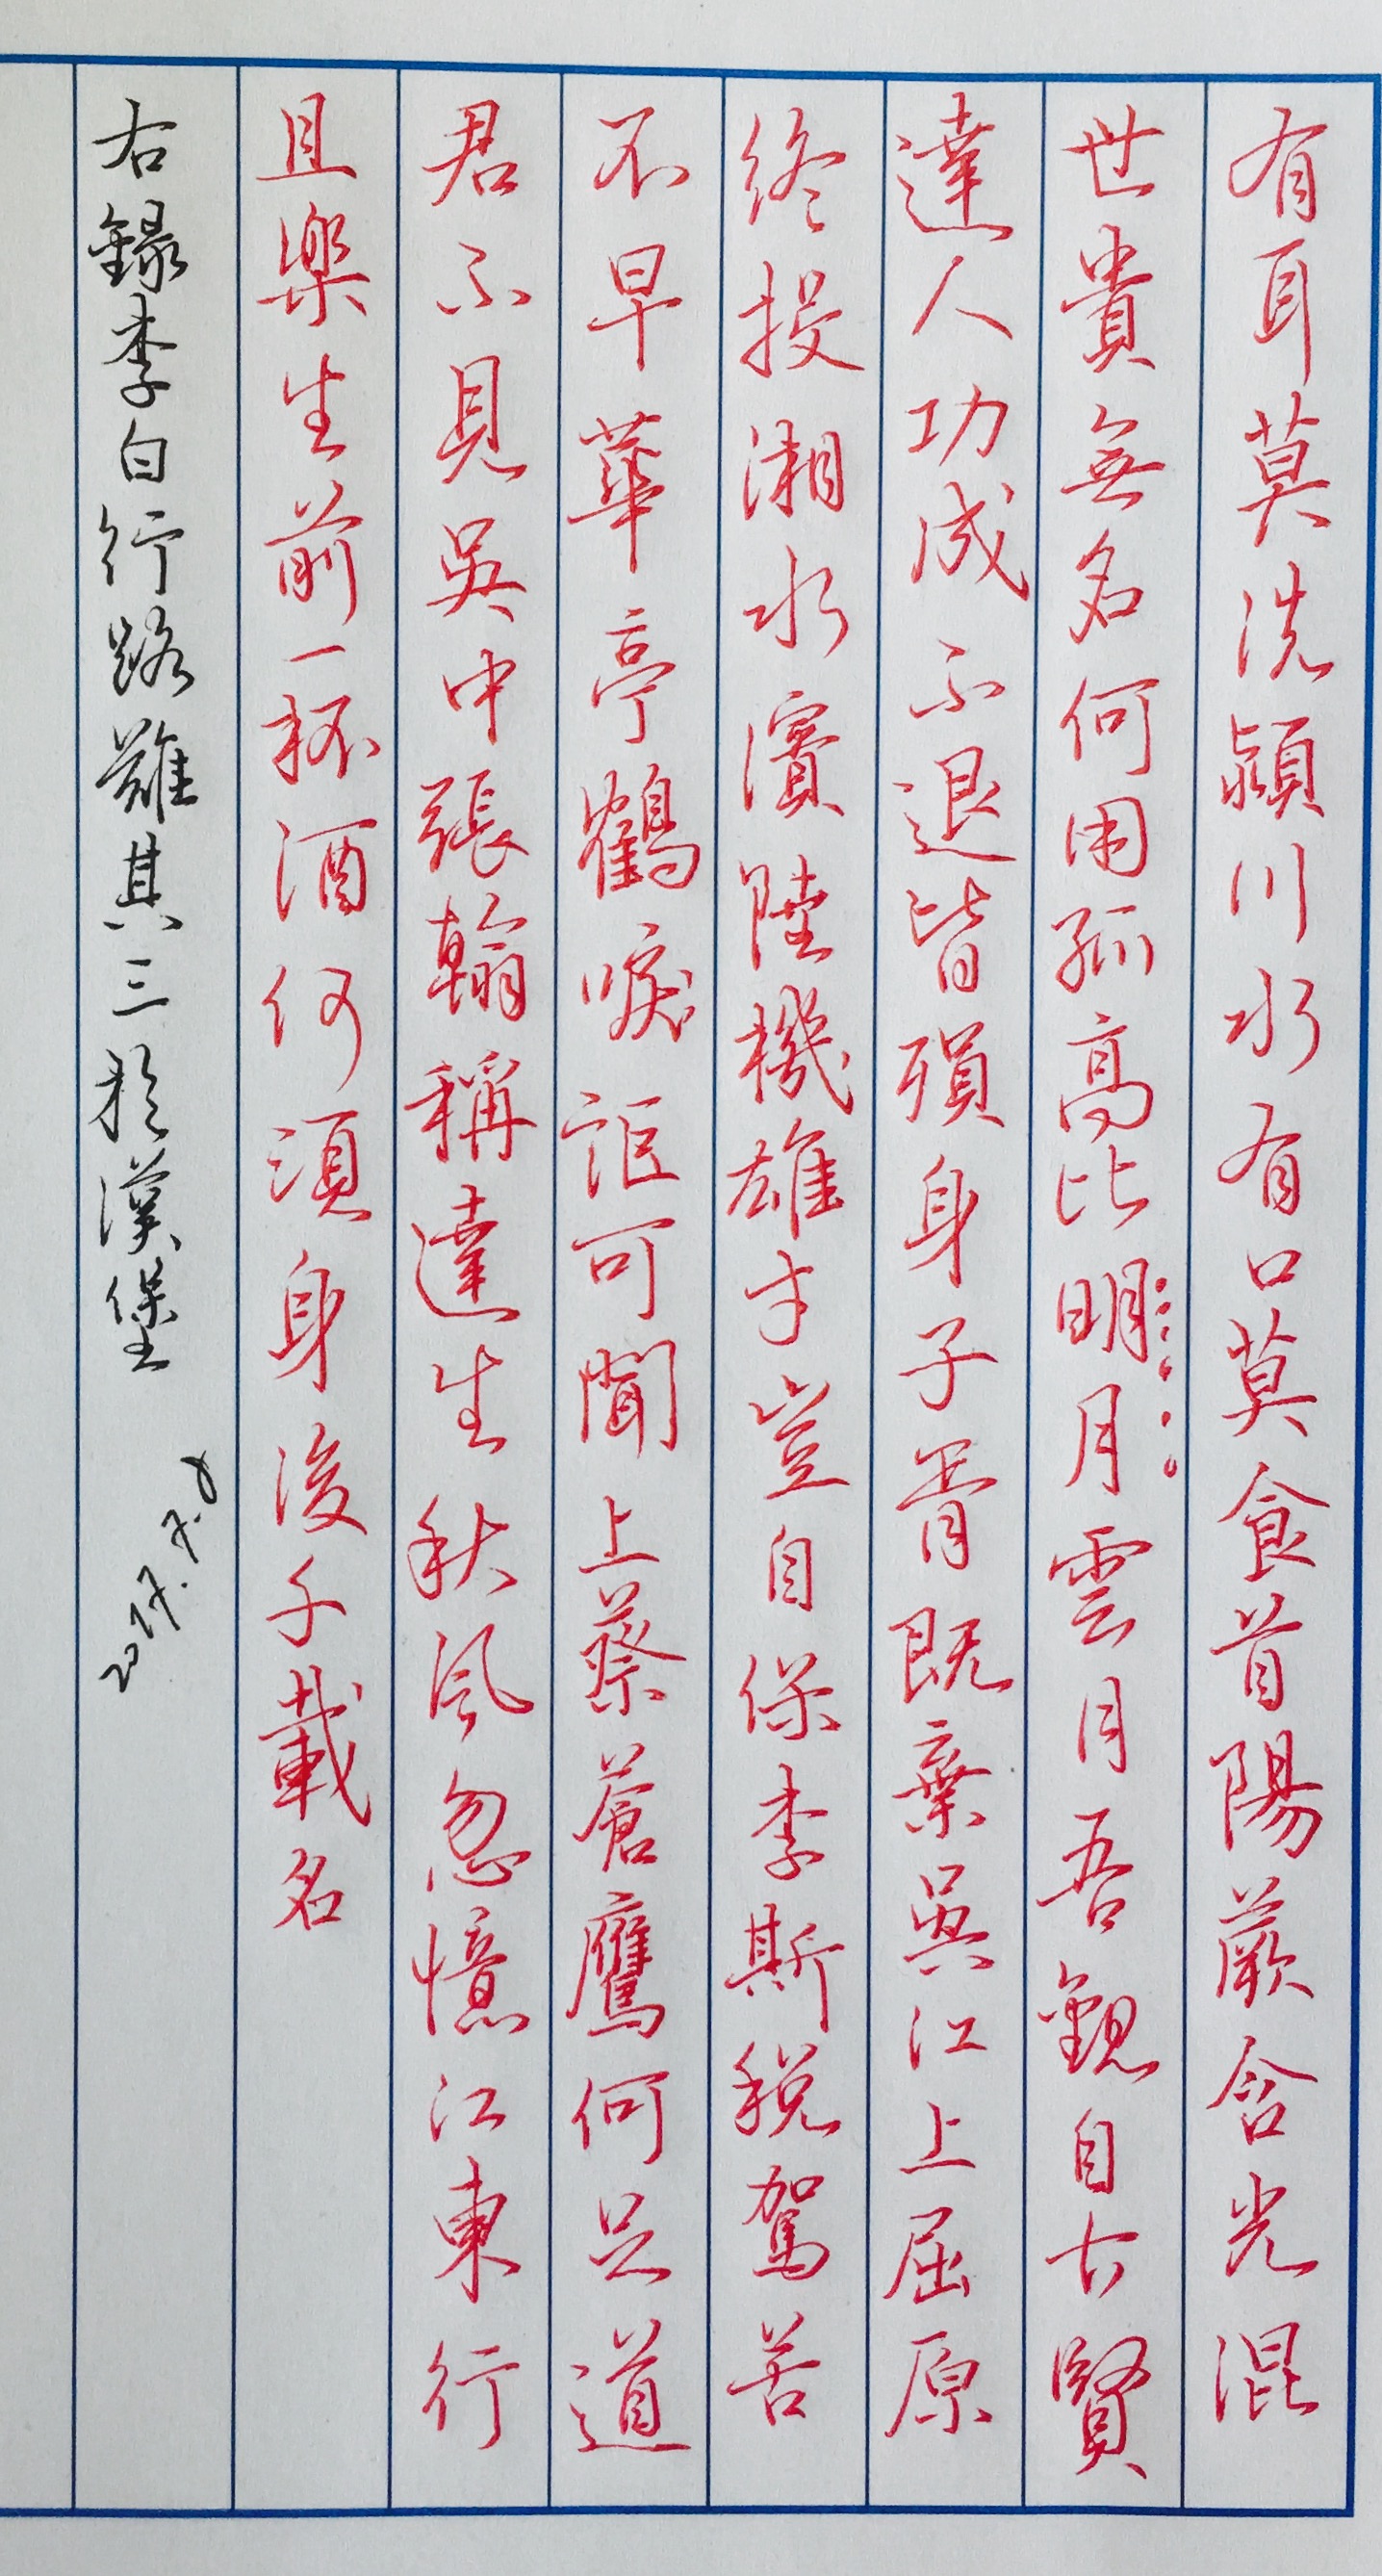 有耳莫洗潁川水有口莫食首陽蕨含光混
世貴無名何用孤高比明月雲月吾觀自古賢
達人功成不退皆殞身子胥既棄吳江上屈原
終投湘水濱陸機雄才豈自保李斯稅駕苦
不早華亭鶴唳詎可聞上蔡蒼鷹何足道
君不見吳中張翰稱達生秋風忽憶江東行
且樂生前一杯酒何須身後千載名
右錄李白行路難其三於漢堡